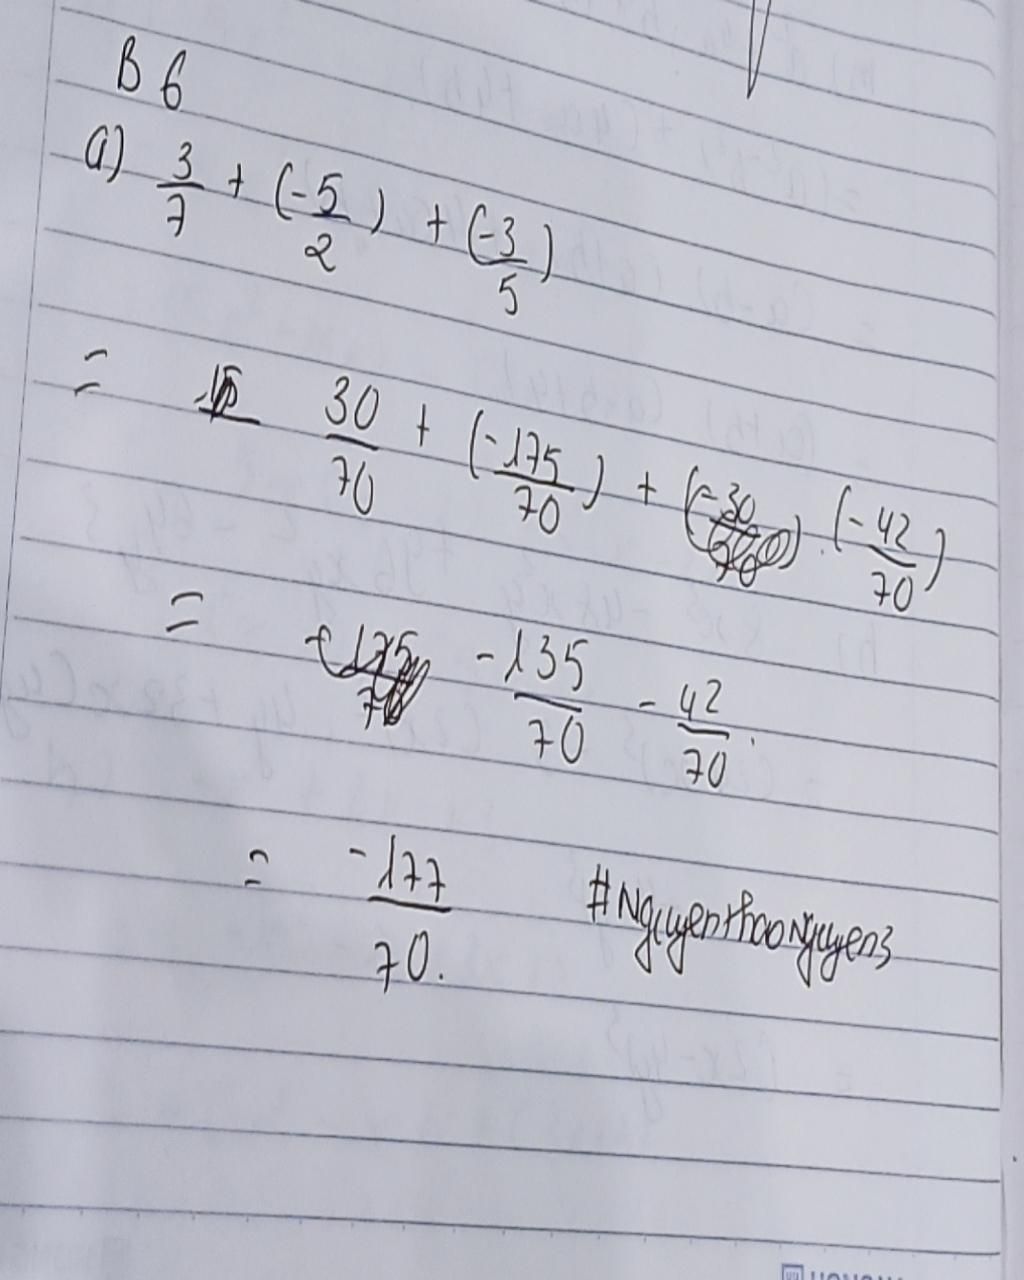 B 6
a) 3/7 + (-5/2) + (-3/5)
= 30/70 + (-175/70) + (-42/70)
= -135/70 - 42/70.
= -177/70. #Nguyenthaonguyen3